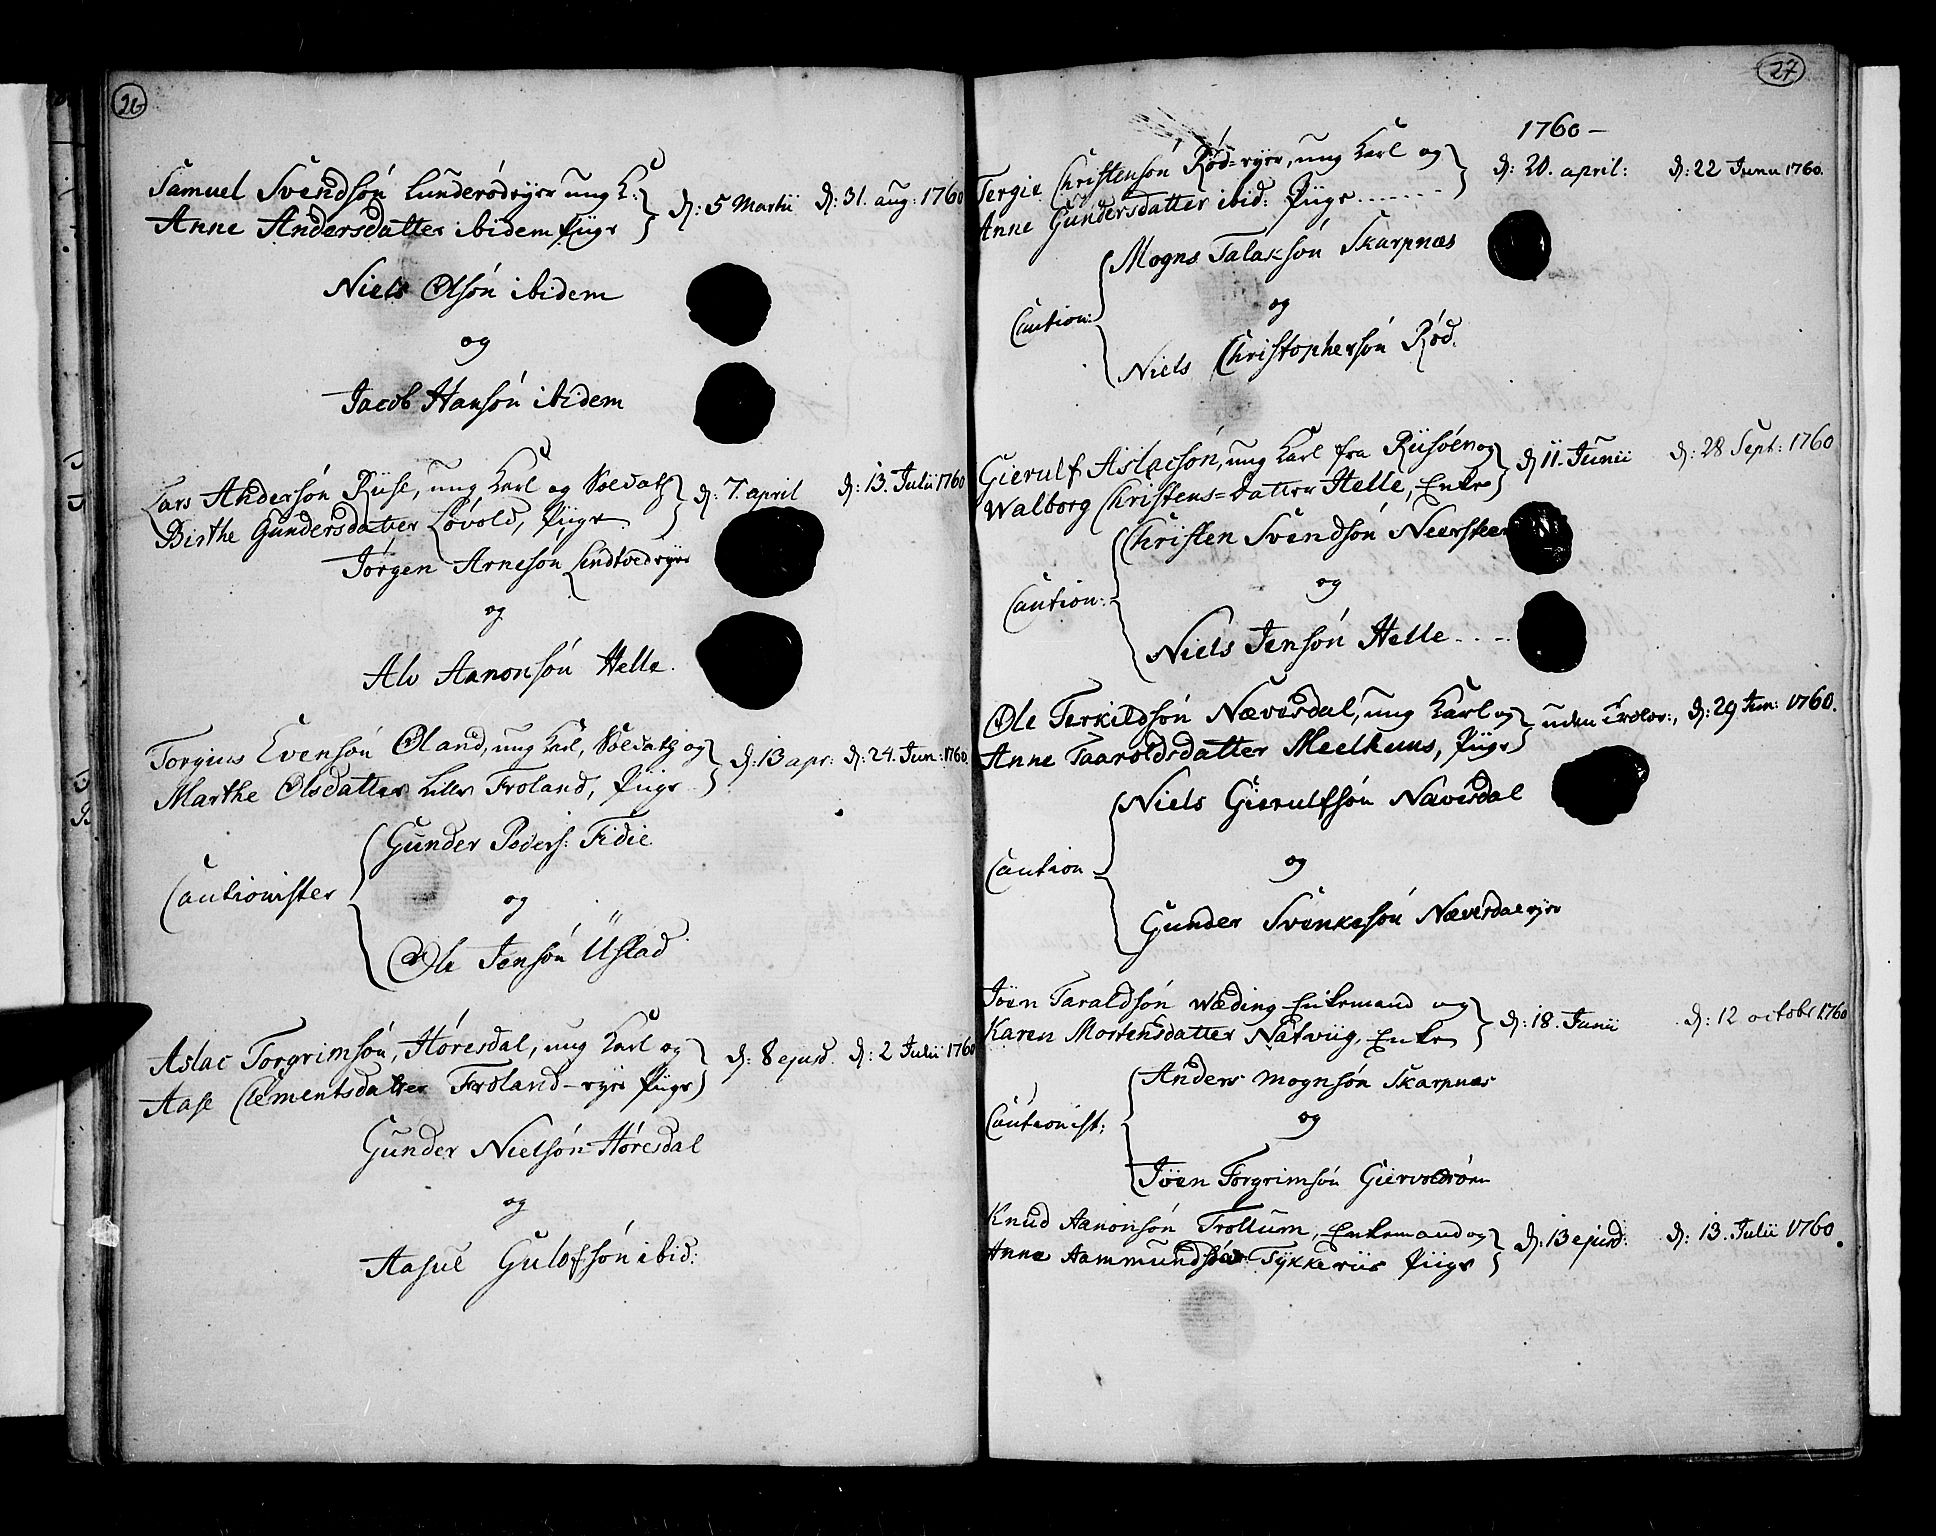 26
Samuel Svendsøn Lunderødryer ung K:
Anne Andersdatter ibidem Piige
d: 5 Martii d: 31. aug: 1760
Niels Olsøn ibidem
og
Jacob Hansøn ibidem
Lars Andersøn Riise, ung Karl og Soldat
Birthe Gundersdatter Løvold, Piige
d: 7. april d: 13. Julii 1760
Jørgen Arnesøn Lindtvedryer
og
Alv Aanonsøn Helle.
Torgius Evensøn Øland, ung Karl, Soldat og
Marthe Olsdatter Lille Froland, Piige
d: 13 apr: d: 24. Jun: 1760.
Cautionister
Gunder Peders: Fidie
og
Ole Jensøn Ustad
Aslac Torgrimsøn, Høresdal, ung Karl og
Aase Clementsdatter Froland-rye Piige
d: 8 ejusd. d: 2 Julii 1760
Gunder Nielsøn Høresdal
og
Aasul Gulofsøn ibid:
27
1760 –
Tergie Christensøn Rød=ryer, ung Karl og
Anne Gundersdatter ibid: Piige......
d: 20. april: d: 22 Junii 1760.
Caution:
Mogns Talaksøn Skarpnæs
og
Niels Christophersøn Rød.
Gierulf Aslacsøn, ung Karl fra Riisøen og
Walborg Christens=datter Helle, Enke
d 11. Junii d: 28 Sept: 1760
Caution:
Christen Svendsøn Neerskeer
og
Niels Jensøn Helle....
Ole Terkildsøn Næversdal, ung Karl og
Anne Taaroldsdatter Meelhuus, Piige
uden Trolov:, d: 29 Jun: 1760.
Caution
Niels Gierulfsøn Næversdal
og
Gunder Svenkesøn Næversdalrye
Jöen Taraldsøn Wæding Enkemand og
Karen Mortensdatter Natviig, Enke
d: 18. Junii d: 12 octobr 1760
Cautionist:
Anders Mognsøn Skarpnæs
og
Jöen Torgrimsøn
Knud Aanonsøn Trollum, Enkemand og
Anne Tykkeriis Piige
d: 13 ejusd: d: 13. Julii 1760.